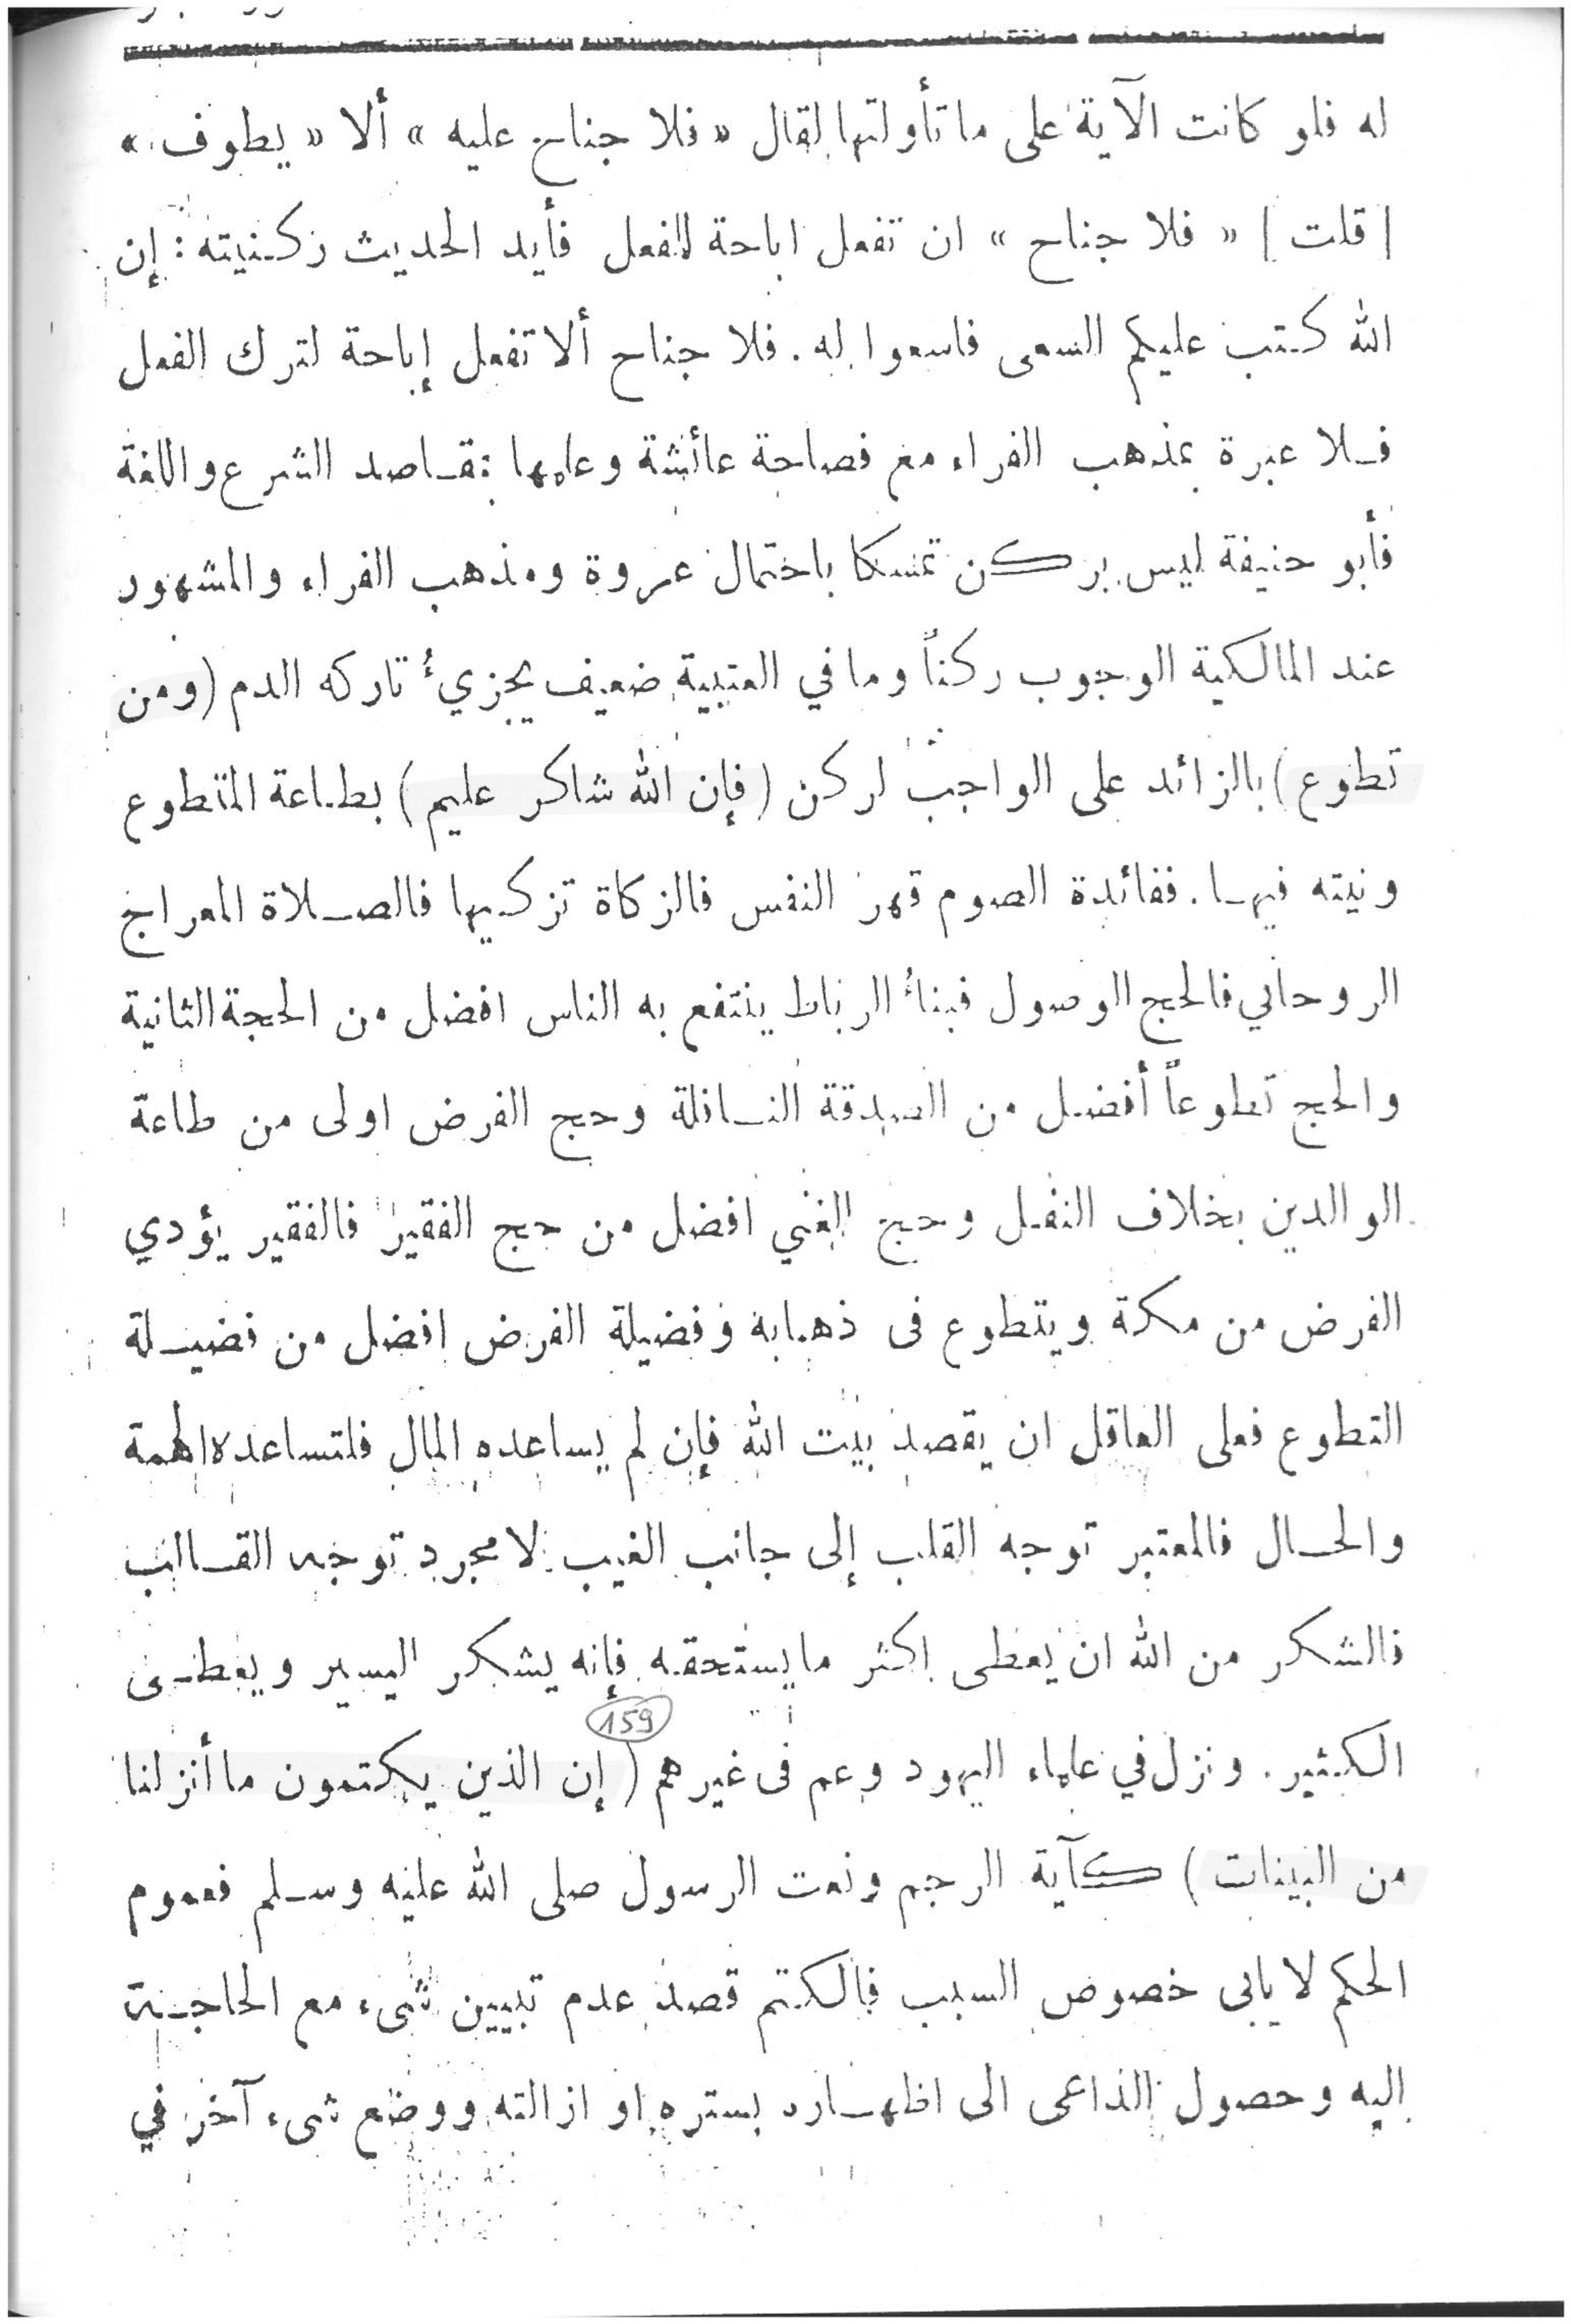 له فلو كانت الآية على ما تأولتها لقال « فلا جناح عليه » ألا « يطوف »
[ قلت ] « فلا جناح » ان تفعل اباحة للفعل فأيد الحديث ركنيته : إن
الله كتب عليكم السعى فاسعوا له . فلا جناح ألا تفعل إباحة لترك الفعل
فلا عبرة بمذهب الفراء مع فصاحة عائشة وعلمها بمقاصد الشرع واللغة
فأبو حنيفة ليس بركن تمسكا باحتمال عروة ومذهب الفراء والمشهور
عند المالكية الوجوب ركناً وما في العتبية ضعيف يجزيءُ تاركه الدم (ومن
تطوع) بالزائد على الواجب لركن (فإن الله شاكر عليم) بطاعة المتطوع
ونيته فيها . ففائدة الصوم قهر النفس فالزكاة تزكيها فالصلاة المعراج
الروحاني فالحج الوصول فبناءُ الرباط ينتفع به الناس افضل من الحجة الثانية
والحج تطوعاً أفضل من الصدقة النافلة وحج الفرض اولى من طاعة
الوالدين بخلاف النفل وحج الغني افضل من حج الفقير فالفقير يؤدي
الفرض من مكة ويتطوع فى ذهابه وفضيلة الفرض افضل من فضيلة
التطوع فعلى العاقل ان يقصد بيت الله فإن لم يساعده المال فلتساعده الهمة
والحال فالمعتبر توجه القلب إلى جانب الغيب لا مجرد توجه القالب
فالشكر من الله ان يعطى اكثر ما يستحقه فإنه يشكر اليسير ويعطى
159
الكثير . ونزل في علماء اليهود وعم فى غيرهم (إن الذين يكتمون ما أنزلنا
من البينات ) كآية الرجم ونعت الرسول صلى الله عليه وسلم فعموم
الحكم لا يابى خصوص السبب فالكتم قصد عدم تبيين شىء مع الحاجة
اليه وحصول الداعى الى اظهاره بستره او ازالته ووضع شىء آخر في